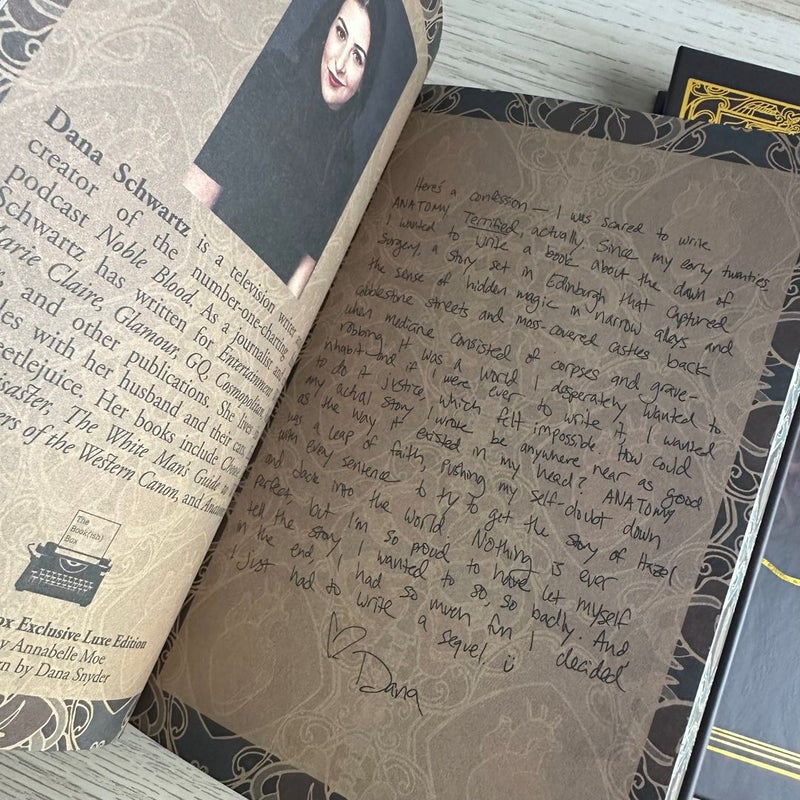 Dana Schwartz is a television writer,
creator of the number-one-charting
podcast Noble Blood. As a journalist and
Schwartz has written for Entertainment
Marie Claire, Glamour, GQ, Cosmopolitan
and other publications. She lives
with her husband and their cats,
eetlejuice. Her books include Choose
isaster, The White Man's Guide to
ers of the Western Canon, and Anatomy
The
Book(ish)
Box
ox Exclusive Luxe Edition
by Annabelle Moe
n by Dana Snyder
Here's a confession — I was scared to write
ANATOMY. Terrified, actually. Since my early twenties,
I wanted to write a book about the dawn of
surgery, a story set in Edinburgh that captured
the sense of hidden magic in narrow alleys and
cobblestone streets and moss-covered castles back
when medicine consisted of corpses and grave-
robbing. It was a world I desperately wanted to
inhabit and if I were ever to write it, I wanted
to do it justice, which felt impossible. How could
my actual story I wrote be anywhere near as good
as the way it existed in my head? ANATOMY
was a leap of faith, pushing my self-doubt down
with every sentence to try to get the story of Hazel
and Jack into the world. Nothing is ever
perfect, but I'm so proud to have let myself
tell the story I wanted to so, so badly. And
in the end, I had so much fun I decided
I just had to write a sequel
Dana